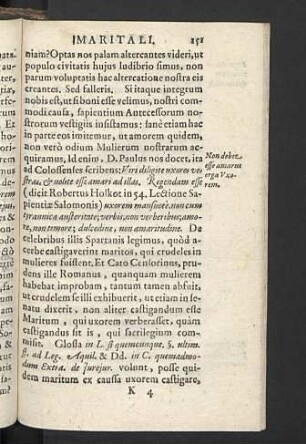 MARITALI. 151
niam? Optas nos palam altercantes videri, ut
populo civitatis hujus ludibrio simus, non
parum voluptatis hac altercatione nostra eis
creantes. Sed falleris. Si itaque integrum
nobis est, ut si boni esse velimus, nostri com-
modi causa, sapientium Antecessorum no-
strorum vestigiis insistamus: sanè etiam hac
in parte eos imitemur, ut amorem quidem,
non verò odium Mulierum nostrarum ac-
quiramus. Id enim, D. Paulus nos docet, ita
ad Colossenses scribens; Viri diligite uxores ve-
stras, & nolite esse amari ad illas. Regendam esse
(dicit Robertus Holkot in 54. Lectione Sa-
pientiæ Salomonis) uxorem mansuetè, non cum
tyrannica austeritate; verbis, non verberibus; amo-
re, non timore; dulcedine, non amaritudine. De
celebribus illis Spartanis legimus, quòd a-
cerbe castigaverint maritos, qui crudeles in
mulieres fuissent. Et Cato Censorinus, pru-
dens ille Romanus, quanquam mulierem
habebat improbam, tantum tamen absuit,
ut crudelem se illi exhibuerit, ut etiam in se-
natu dixerit, non aliter castigandum esse
Maritum, qui uxorem verberasset, quàm
castigandus sit is, qui sacrilegium com-
misit. Glossa in L. si quemcunque. §. ultim.
ff. ad Leg. Aquil. & Dd. in C. quemadmo-
dum Extra. de jurejur. volunt, posse qui-
dem maritum ex caussa uxorem castigare,
K 4
Non debet
esse amarus
erga Uxo-
rem.